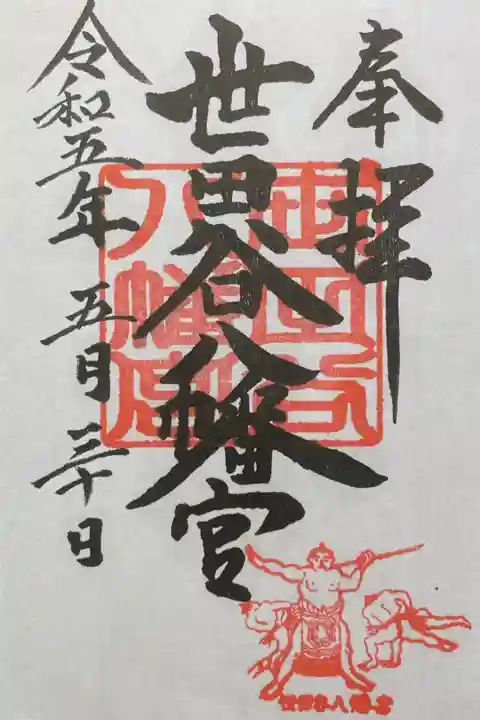 奉拝
世田谷八幡宮
令和五年 五月 三十日
世田谷八幡宮
世田谷八幡宮